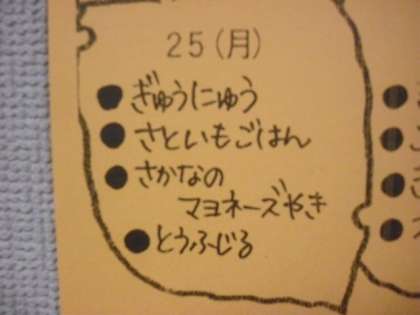 25(月)
●ぎゅうにゅう
●さといもごはん
●さかなの
マヨネーズやき
●とうふじる